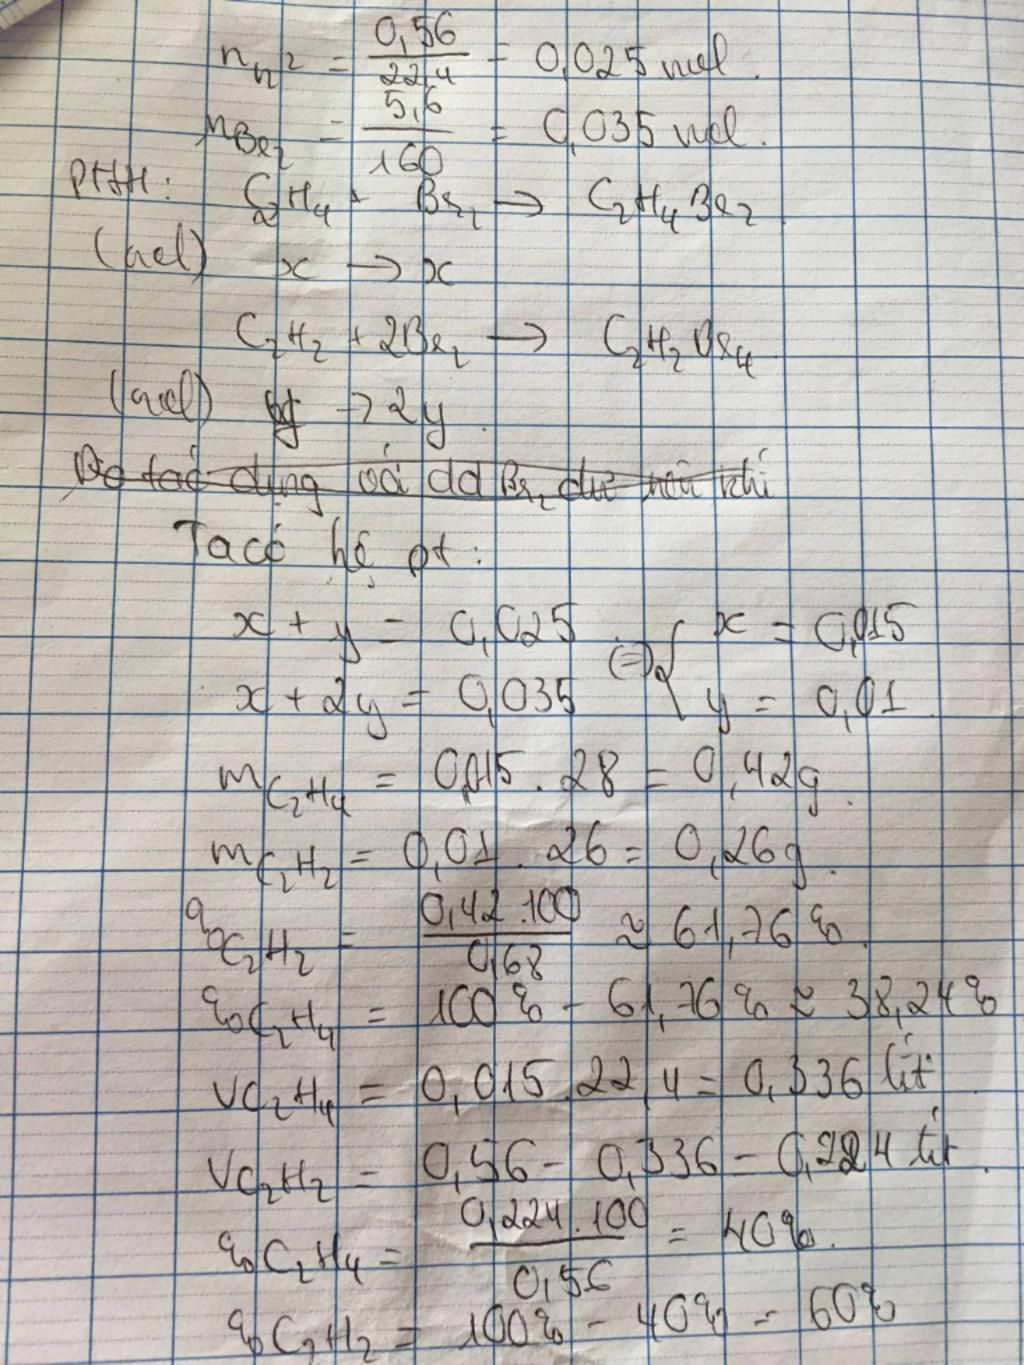 n_h² = 0,56/22,4 = 0,025 mol.
n_Br₂ = 5,6/160 = 0,035 mol.
PTHH: C₂H₄ + Br₂ → C₂H₄Br₂
(mol) x → x
C₂H₂ + 2Br₂ → C₂H₂Br₄
(mol) y → 2y.
Do tác dụng với dd Br₂ dư nên khí
Ta có hệ pt:
x + y = 0,025 (=) { x = 0,015
x + 2y = 0,035 y = 0,01
m C₂H₄ = 0,015 . 28 = 0,42g.
m C₂H₂ = 0,01 . 26 = 0,26g.
% C₂H₂ = 0,42.100/0,68 ≈ 61,76%.
% C₂H₄ = 100% - 61,76% ≈ 38,24%
V C₂H₄ = 0,015.22,4 = 0,336 lít
V C₂H₂ = 0,56 - 0,336 = 0,224 lít.
% C₂H₄ = 0,224.100/0,56 = 40%.
% C₂H₂ = 100% - 40% = 60%